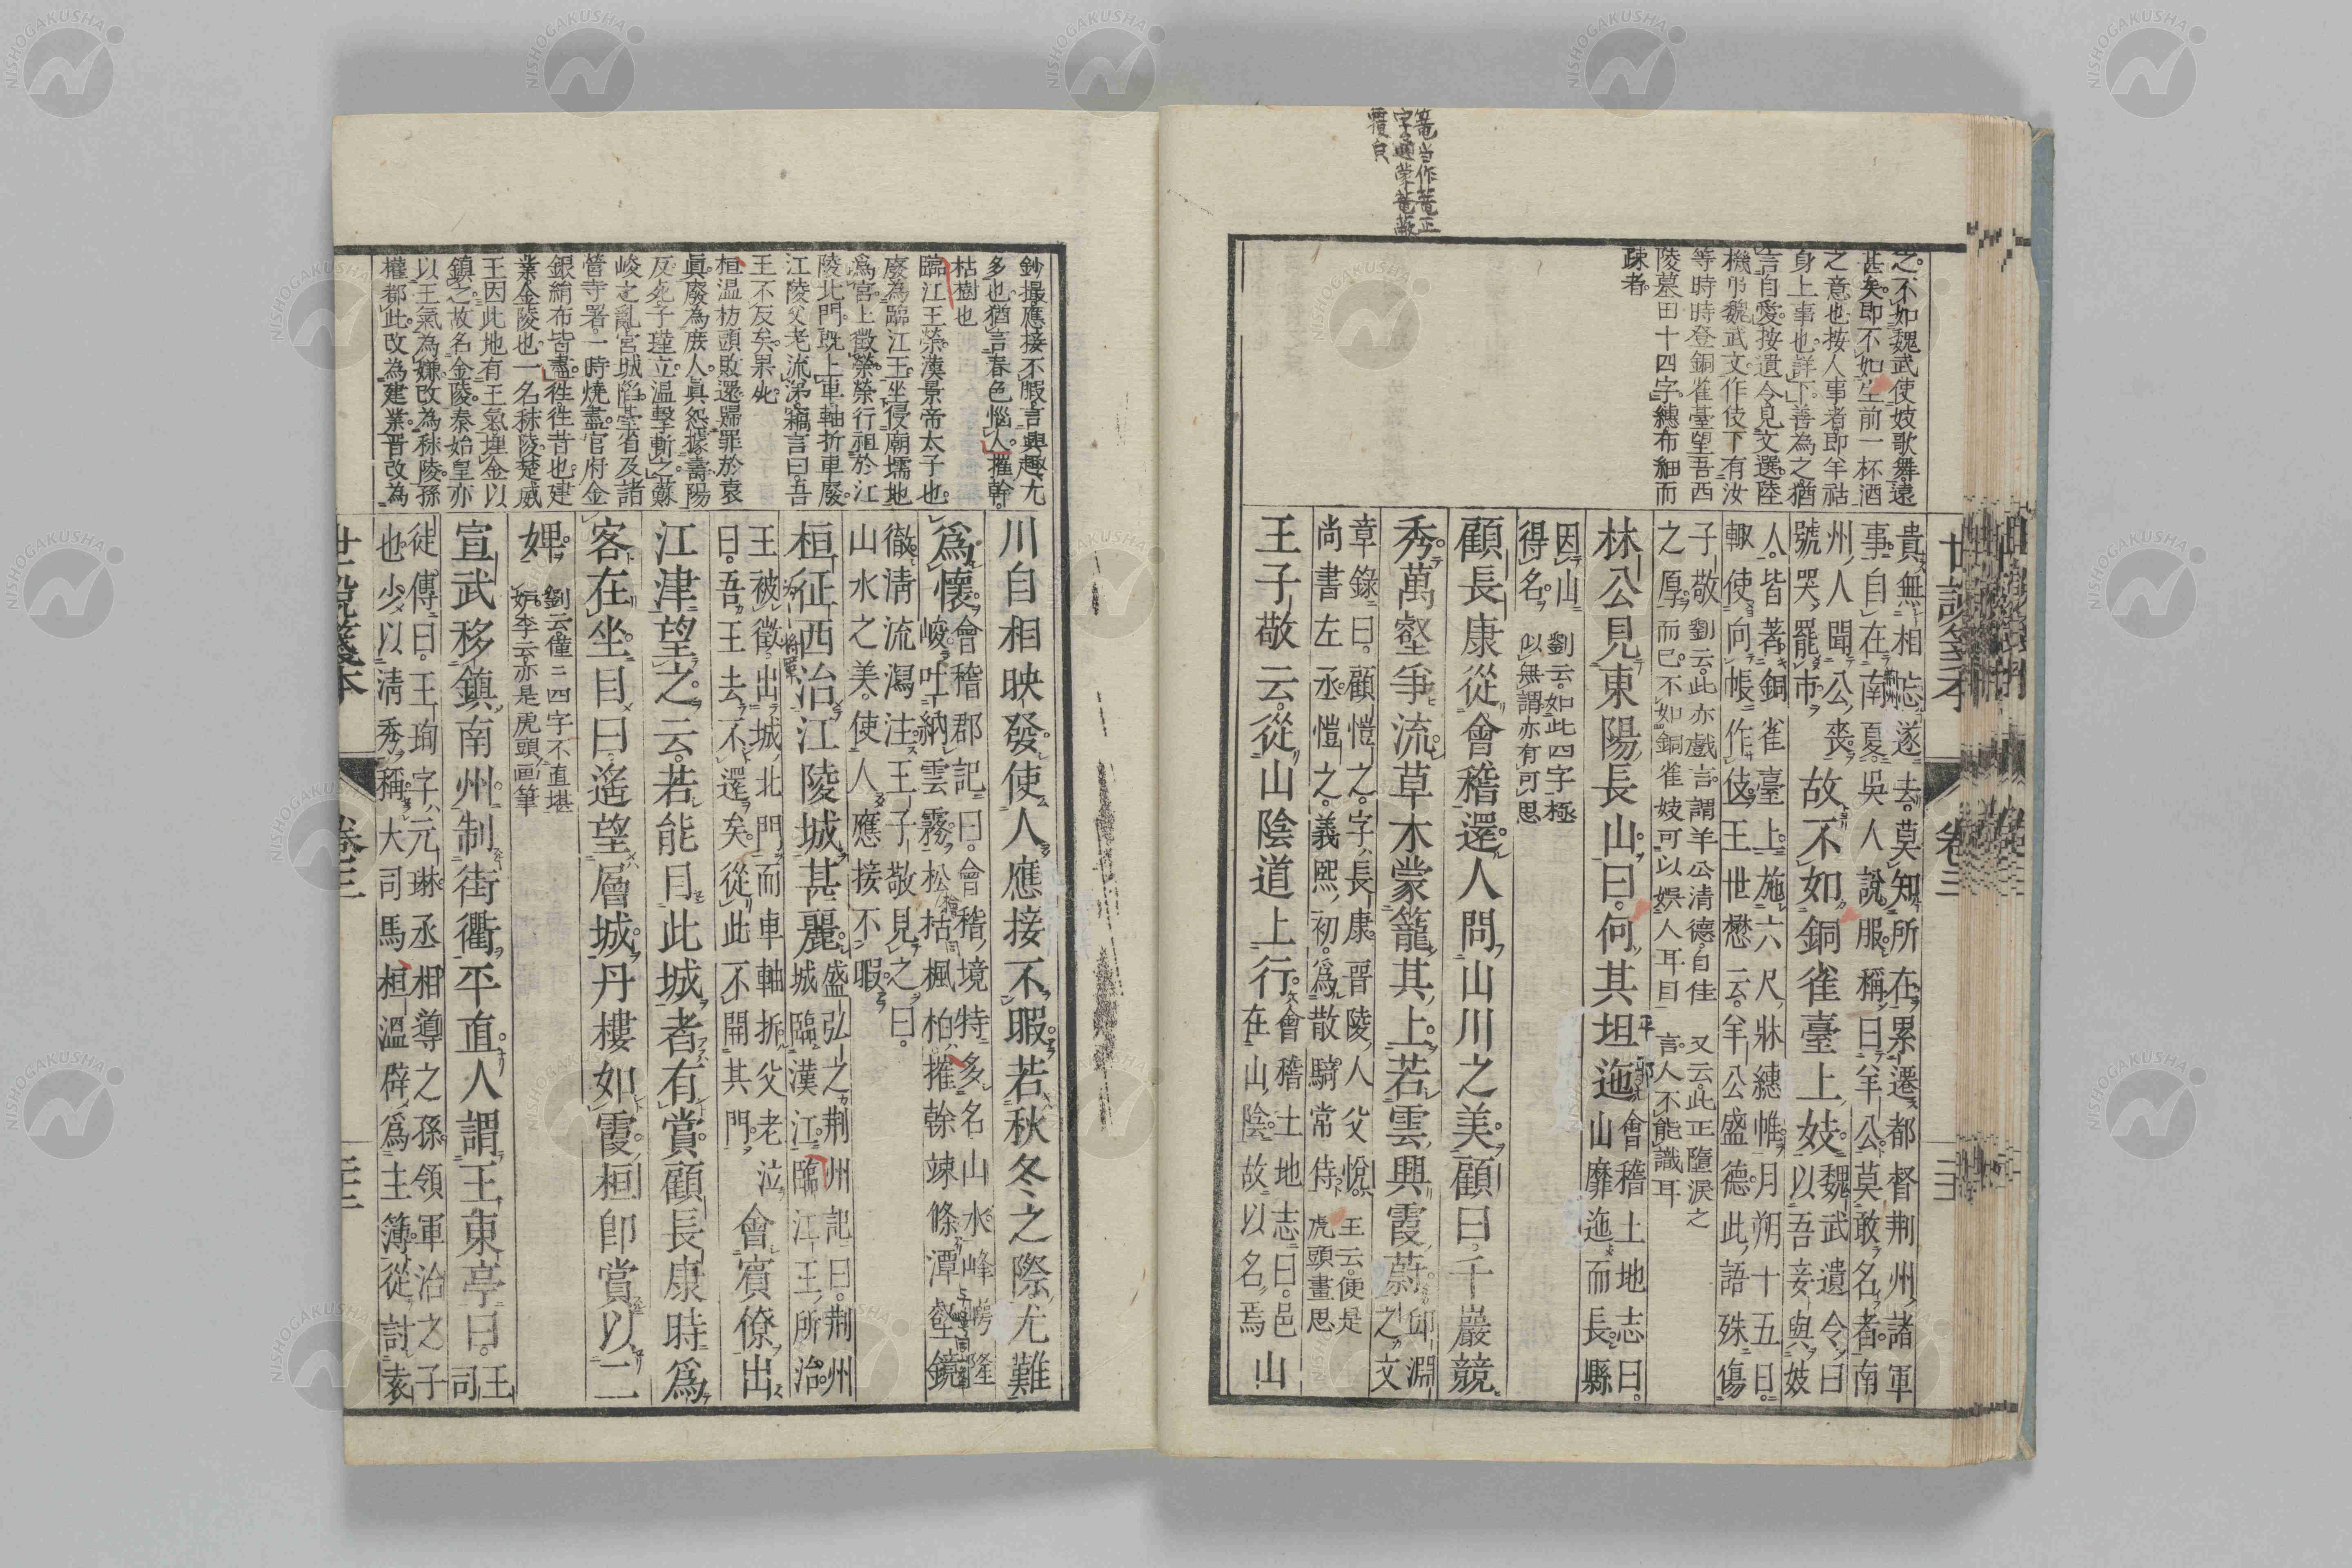 篭当作篭正
字通蒙篭蔽
覆皃
之。不如魏武使妓歌舞。遠
甚矣即不如生前一杯酒
之意也按人事者。即羊祜
身上事也。詳下。善為之。猶
言自愛。按遺令見文選。陸
機弔魏武文。作伎下有汝
等時時登銅雀臺望吾西
陵墓田十四字。繐布細而
疎者。
貴無相忘。遂去。莫知所在。累遷都督荆州諸軍
事。自在南夏。吳人說服。稱曰羊公。莫敢名者。南
州人聞公喪。
號哭罷市。
故不如銅雀臺上妓。
魏武遺令曰
以吾妾與妓
人。皆著銅雀臺上。施六尺牀繐帷。月朔十五日。
輙使向帳作伎。王世懋云。羊公盛德。此語殊傷
子敬
之厚。
劉云。此亦戲言。謂羊公清德。自佳
而已。不如銅雀妓可以娯人耳目
又云。此正墮淚之
言。人不能識耳
林公見東陽長山。曰。何其坦迤。
會稽土地志曰。
山靡迤而長。縣
因山
得名。
劉云。如此四字極
似無謂亦有可思
顧長康從會稽還。人問山川之美。顧曰。千巖競
秀。萬壑爭流。草木蒙籠其上。若雲興霞蔚。
丘淵
之文
章錄曰。顧愷之。字長康。晉陵人。父悅。
尚書左丞。愷之。義熙初。爲散騎常侍
王云。便是
虎頭畫思
王子敬云。從山陰道上行。
會稽土地志曰。邑
在山陰。故以名焉
山
世說箋本
卷三
鈔撮。應接不暇。言興趣尤
多也。猶言春色惱人。摧幹。
枯樹也
臨江王榮漢景帝太子也。
廢為臨江王。坐侵廟壖地
爲宮。上徵榮。榮行祖於江
陵北門。既上車。軸折車廢。
江陵父老流涕。竊言曰。吾
王不反矣。果死。
桓温枋頭敗還。歸罪於袁
眞。廢為庶人。眞怨。據壽陽
反。死子瑾立。温擊斬之。蘇
峻之亂宮城陷。基省及諸
營寺署。一時燒盡。官府金
銀絹布皆盡。徃徃昔也。建
業。金陵也。一名秣陵。楚威
王因此地有王氣埋金以
鎮之。故名金陵。秦始皇亦
以王氣為嫌改為秣陵。孫
權都此。改為建業。晉改為
川自相映發。使人應接不暇。若秋冬之際。尤難
爲懷。
會稽郡記曰。會稽境特多名山水。峰崿隆
峻。吐納雲霧。松栝楓柏。摧幹竦條。潭壑鏡
徹。淸流瀉注。王子敬見之曰。
山水之美。使人應接不暇。
桓征西治江陵城甚麗。
盛弘之荆州記曰。荆州
城臨漢江。臨江王所治。
王被徵。出城北門而車軸折。父老泣
曰。吾王去不還矣。從此不開其門。
會賓僚出
江津望之。云。若能目此城者有賞。顧長康時爲
客在坐。目曰。遙望層城。丹樓如霞。桓即賞以二
婢。
劉云。僅二四字不直堪
婢。李云。亦是虎頭画筆
宣武移鎮南州。制街衢平直。人謂王東亭曰。
王
司
徒傳曰。王珣字元琳。丞相導之孫。領軍治之子
也。少以淸秀稱。大司馬桓溫辟爲主簿。從討袁
世說箋本
卷三